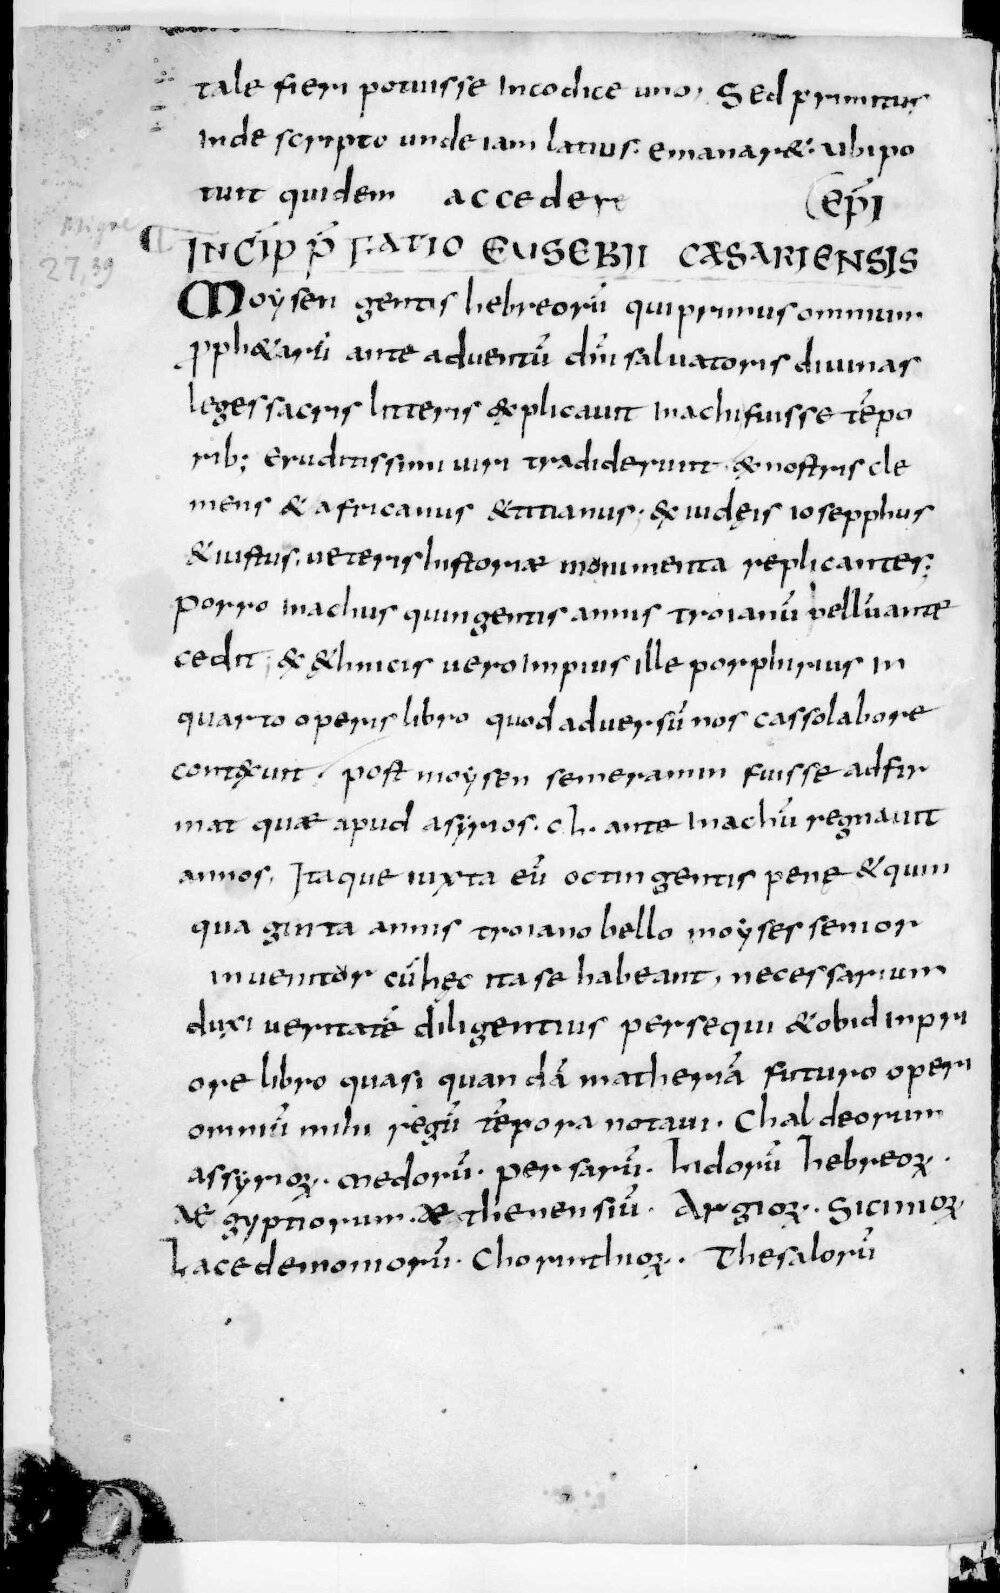 tale fieri potuisse Incodice uno, Sed primitus
Inde scripto unde iam latius: emanar&: ubi po
tuit quidem accedere (EP̄I
Migne
27,39
INCĪP P̄FATIO EUSEBII CÆSARIENSIS
Moÿsen gentis hebreorū qui primus omnium
pph&arū ante aduentū dn̄i saluatoris diuinas
leges sacris litteris &plicauit Inachi fuisse tēpo
rib; eruditissimi uiri tradiderunt. &nostris cle
mens & africanus &titianus; & iudęis iosepphus
&iustus, ueteris historiæ monumenta replicantes;
Porro Inachus quingentis annis troianū bellū ante
cedit; & &hnicis uero Impius ille porphirius in
quarto operis libro quod aduersū nos casso labore
cont&uit. post moÿsen semeramin fuisse adfir
mat quæ apud asÿrios. cl. ante Inachū regnauit
annos, Itaque iuxta eū octingentis penę & quin
quaginta annis troiano bello moÿses senior
Inuenitor cū hęc ita se habeant, necessarium
duxi ueritatē diligentius persequi & obid Inpri
ore libro quasi quandā matheriā futuro operi
omniū mihi regū tēpora notaui. Chaldeorum
assyrioꝝ. medorū. persarū. Lidorū hebreoꝝ.
Ægyptiorum. æthenensiū. Argioꝝ. Sicinioꝝ.
Lacedemoniorū. Chorinthioꝝ. Thesalorū